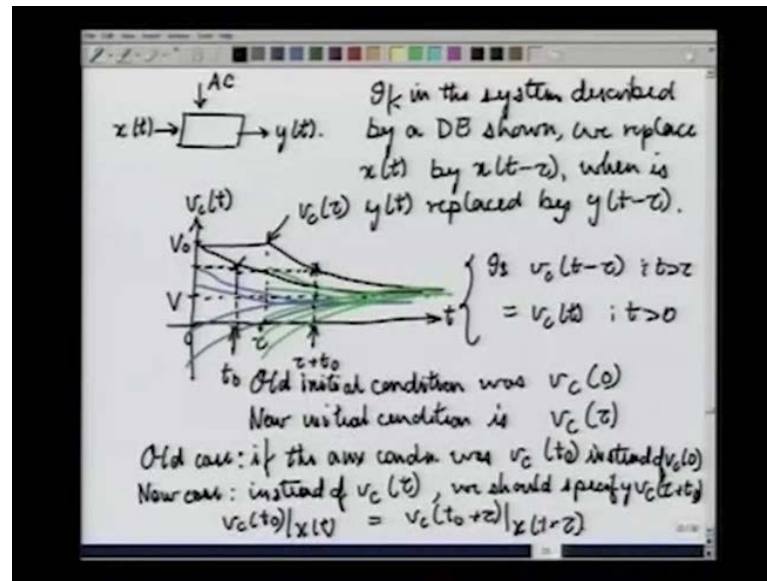 AC
x(t) → y(t).
If in the system described
by a DE shown, we replace
x(t) by x(t-τ), when is
y(t) replaced by y(t-τ).
v_c(t)
v_c(τ)
V_0
V
0
t_0
τ
τ+t_0
t
Is v_c(t-τ) ; t>τ
= v_c(t) ; t>0
Old initial condition was v_c(0)
New initial condition is v_c(τ)
Old case: if the aux condn was v_c(t_0) instead of v_c(0)
New case: instead of v_c(τ), we should specify v_c(τ+t_0)
v_c(t_0)|x(t) = v_c(t_0+τ)|x(t-τ)